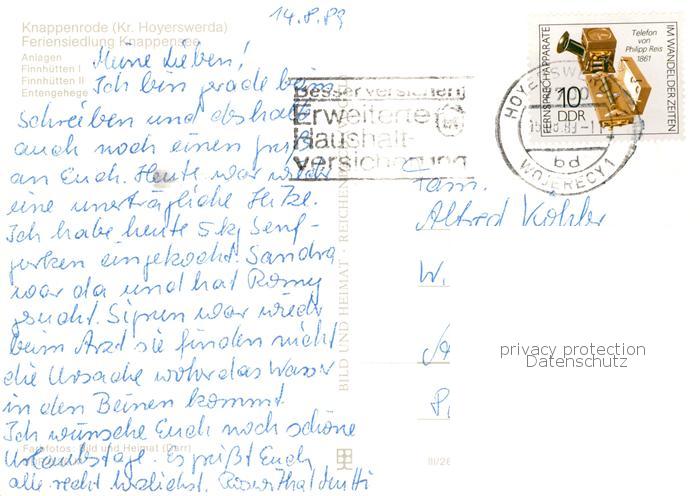 14.8.89
Knappenrode (Kr. Hoyerswerda)
Feriensiedlung Knappensee
Anlagen
Finnhütten I
Finnhütten II
Entengehege
Meine Lieben!
Ich bin grade beim
schreiben und deshalb
auch noch einen gruß
an Euch. Heute war wieder
eine unerträgliche Hitze.
Ich habe heute 5 kg Senf-
gurken eingekocht. Sandra
war da und hat Romy
gesucht. Sigrun war wieder
beim Arzt sie finden nicht
die Ursache woher das Wasser
in den Beinen kommt.
Ich wünsche Euch noch schöne
Urlaubstage. Es grüßt Euch
alle recht herzlichst.
Farbfotos: Bild und Heimat (Darr)
BILD UND HEIMAT · REICHENBACH
III/26
Besser versichern
Erweiterte
Haushalt-
versicherung
HOYERSWERDA
15.8.89-1
bd
WOJERECY 1
FERNSPRECHAPPARATE
IM WANDEL DER ZEITEN
Telefon
von
Philipp Reis
1861
10
DDR
Fam.
Alfred Kohler
W.
A
P.
privacy protection
Datenschutz